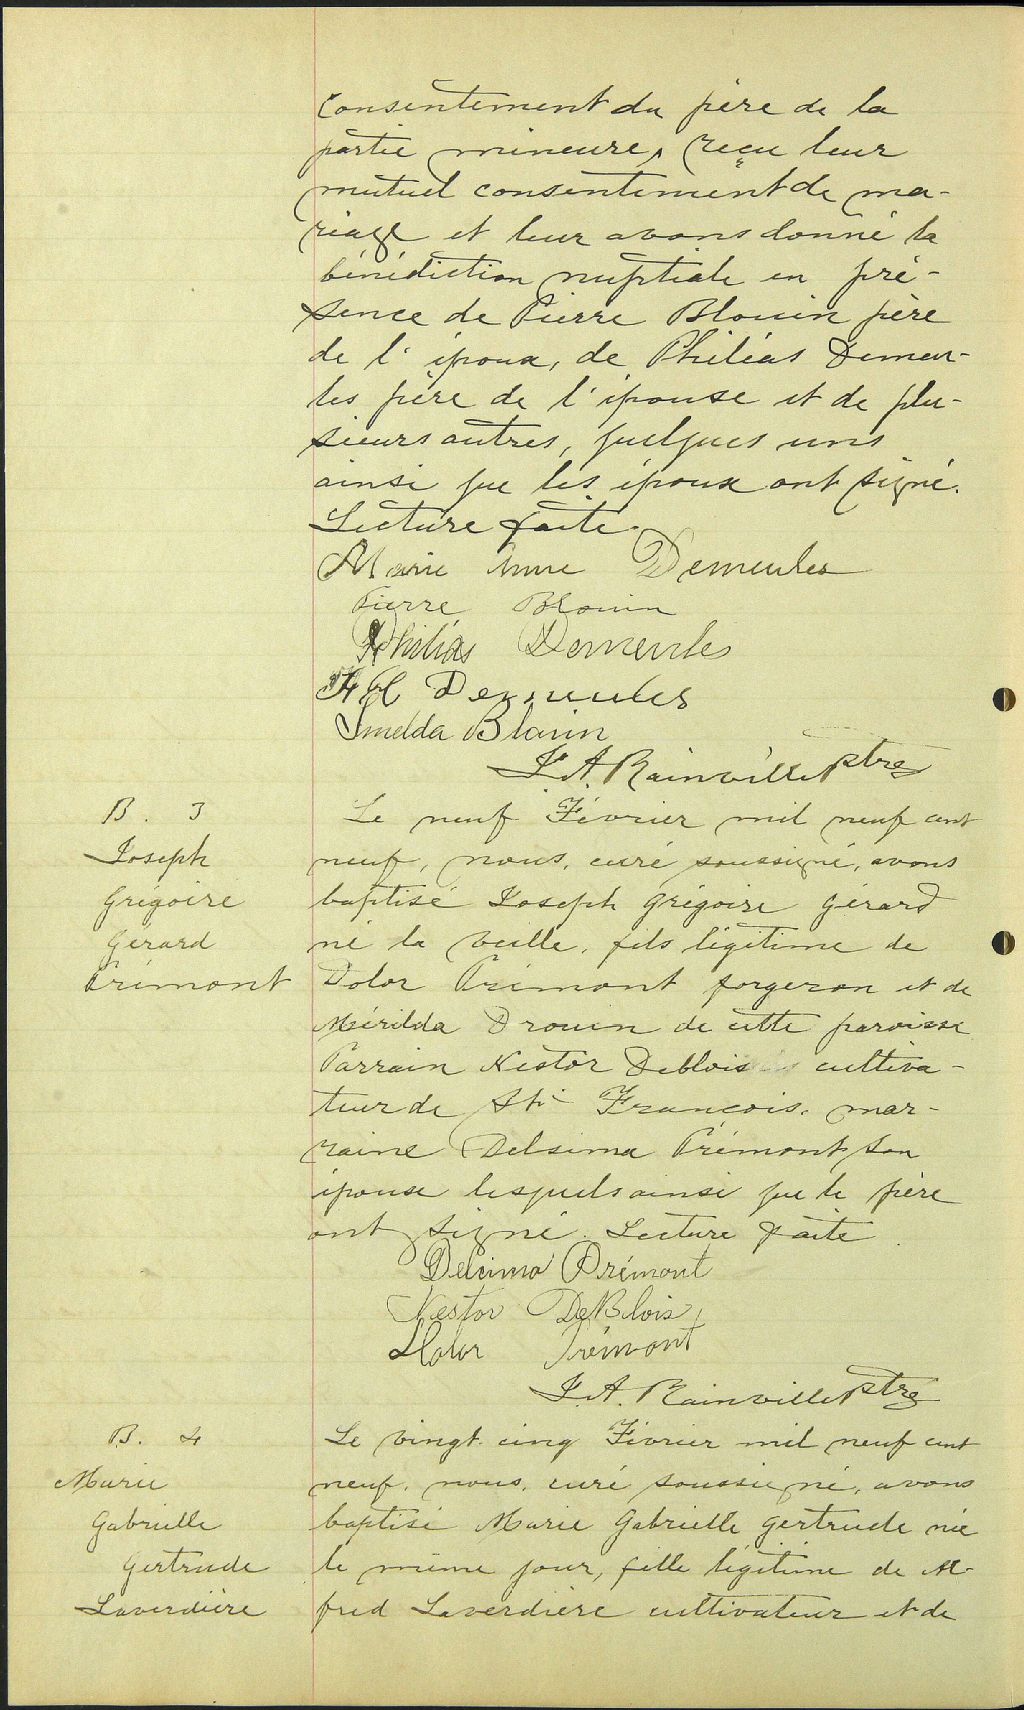 consentement du père de la
partie mineure, reçu leur
mutuel consentement de ma-
riage et leur avons donné la
bénédiction nuptiale en pré-
sence de Pierre Blouin père
de l'époux, de Philéas Demeu-
les père de l'épouse et de plu-
sieurs autres, quelques uns
ainsi que les époux ont signé.
Lecture faite.
Marie Anne Demeules
Pierre Blouin
Philias Demeules
Demeules
Imelda Blouin
J. A. Rainville Ptre
B. 3
Joseph
Grégoire
Gérard
Prémont
Le neuf Février mil neuf cent
neuf, nous, curé soussigné, avons
baptisé Joseph Grégoire Gérard
né la veille, fils légitime de
Dolor Prémont forgeron et de
Mérilda Drouin de cette paroisse
Parrain Nestor Deblois cultiva-
teur de St François, mar-
raine Delsima Prémont, son
épouse lesquels ainsi que le père
ont signé. Lecture faite
Delsima Prémont
Nestor DeBlois
Dolor Prémont
J. A. Rainville Ptre
B. 4
Marie
Gabrielle
Gertrude
Laverdière
Le vingt cinq Février mil neuf cent
neuf, nous, curé soussigné, avons
baptisé Marie Gabrielle Gertrude née
le même jour, fille légitime de Al-
fred Laverdière cultivateur et de